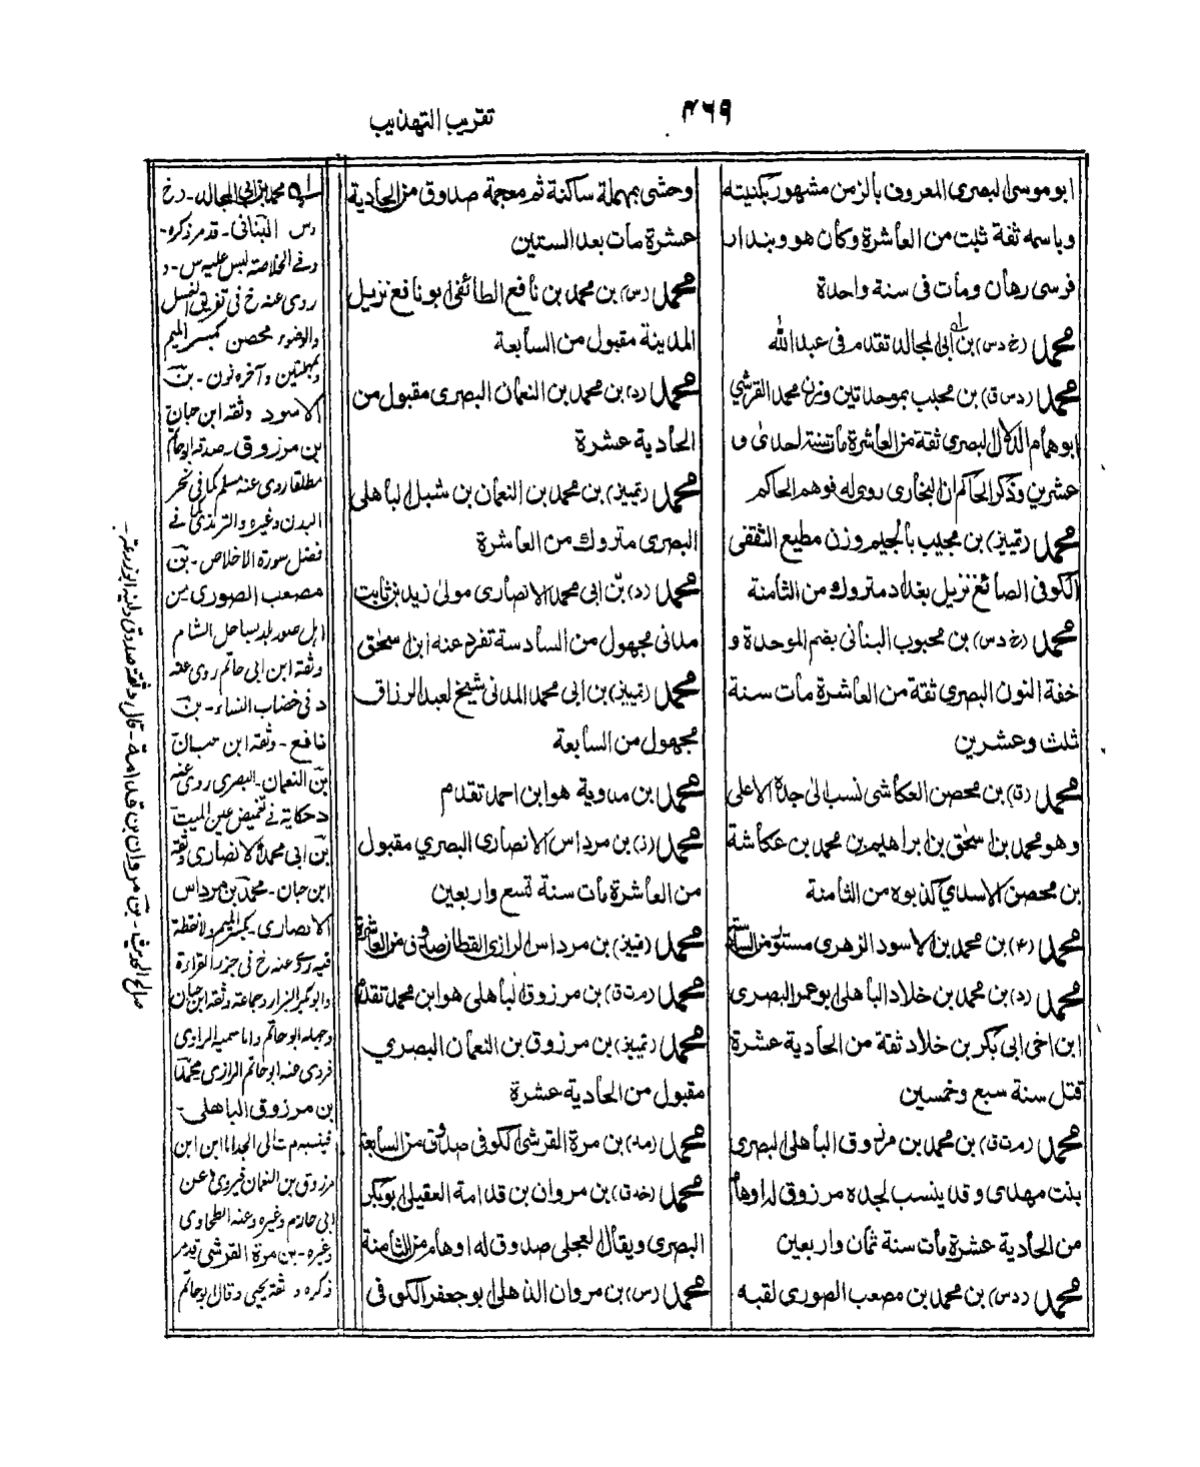 تقريب التهذيب
٤٦٩
ابو موسى البصرى المعروف بالزمن مشهور بكنيته
وباسمه ثقة ثبت من العاشرة وكان هو وبندار
فرسى رهان ومات فى سنة واحدة
محمد (خ د س) بن ابى المجالد تقدم فى عبد الله
محمد (د س ق) بن محبب بموحدتين وزن محمد القرشي
ابو همام الدلال البصرى ثقة من العاشرة مات سنة احدى و
عشرين وذكر الحاكم ان البخارى روى له فوهم الحاكم
محمد (تمييز) بن مجيب بالجيم وزن مطيع الثقفى
الكوفى الصائغ نزيل بغداد متروك من الثامنة
محمد (خ د س) بن محبوب البنانى بضم الموحدة و
خفة النون البصرى ثقة من العاشرة مات سنة
ثلث وعشرين
محمد (ق) بن محصن العكاشى نسب الى جده الاعلى
وهو محمد بن اسحق بن ابراهيم بن محمد بن عكاشة
بن محصن الاسدي كذبوه من الثامنة
محمد (٤) بن محمد بن الاسود الزهرى مستور من السادسة
محمد (د) بن محمد بن خلاد الباهلى ابو عمر البصرى
ابن اخى ابى بكر بن خلاد ثقة من الحادية عشرة
قتل سنة سبع وخمسين
محمد (م ت ق) بن محمد بن مرزوق الباهلى البصرى
بنت مهدى وقد ينسب لجده مرزوق له اوهام
من الحادية عشرة مات سنة ثمان واربعين
محمد (د س) بن محمد بن مصعب الصورى لقبه
وحشى بمهملة ساكنة ثم معجمة صدوق من الحادية
عشرة مات بعد الستين
محمد (س) بن محمد بن نافع الطائفى ابو نافع نزيل
المدينة مقبول من السابعة
محمد (د) بن محمد بن النعمان البصرى مقبول من
الحادية عشرة
محمد (تمييز) بن محمد بن النعمان بن شبل الباهلى
البصرى متروك من العاشرة
محمد (د) بن ابى محمد الانصارى مولى زيد بن ثابت
مدنى مجهول من السادسة تفرد عنه ابن اسحق
محمد (تمييز) بن ابى محمد المدنى شيخ لعبد الرزاق
مجهول من السابعة
محمد بن مدوية هو ابن احمد تقدم
محمد (ز) بن مرداس الانصارى البصري مقبول
من العاشرة مات سنة تسع واربعين
محمد (تمييز) بن مرداس الرازى القطان صدوق من العاشرة
محمد (م ت ق) بن مرزوق الباهلى هو ابن محمد تقدم
محمد (تمييز) بن مرزوق بن النعمان البصري
مقبول من الحادية عشرة
محمد (مد) بن مرة القرشى الكوفى صدوق من السابعة
محمد (خد ق) بن مروان بن قدامة العقيلى ابو بكر
البصرى ويقال العجلى صدوق له اوهام من الثامنة
محمد (س) بن مروان الذهلى ابو جعفر الكوفى
محمد بن ابى المجالد - د خ
د س البنانى - قد مر ذكره -
وفى الخلاصة ليس عليه س - و
روى عنه خ فى تفريق الغسل
والوضوء محصن كمسر الميم
ومهملتين وآخره نون - بن
الاسود وثقه ابن حبان
بن مرزوق - صدقه ابو حاتم
مطلقا روى عنه مسلم كما فى نحر
البدن وغيره والترمذى فى
فضل سورة الاخلاص - بن
مصعب الصورى من
اهل صور بلد بساحل الشام
وثقه ابن ابى حاتم روى عنه
د فى خضاب النساء - بن
نافع - وثقه ابن حبان
بن النعمان - البصرى روى عنه
د حكاية فى تغميض عين الميت
بن ابى محمد الانصارى وثقه
ابن حبان - محمد بن مرداس
الانصارى - بكسر الميم ولا نقطة
فيه روى عنه خ فى جزء القراءة
وابو بكر البزار وجماعة وثقه ابن حبان
وجهله ابو حاتم واما سميه الرازى
فروى عنه ابو حاتم الرازى محمد
بن مرزوق الباهلى -
فينسبه م ت الى الجد اما ابن ابن
مرزوق بن النعمان فيروى عن
ابى حازم وغيره وعنه الطحاوى
وغيره - بن مرة القرشى قد مر
ذكره وثقه يحيى وقال ابو حاتم
صالح الحديث - بن مروان بن قدامة - قال د ثقة صدوق ولينه ابو زرعة -